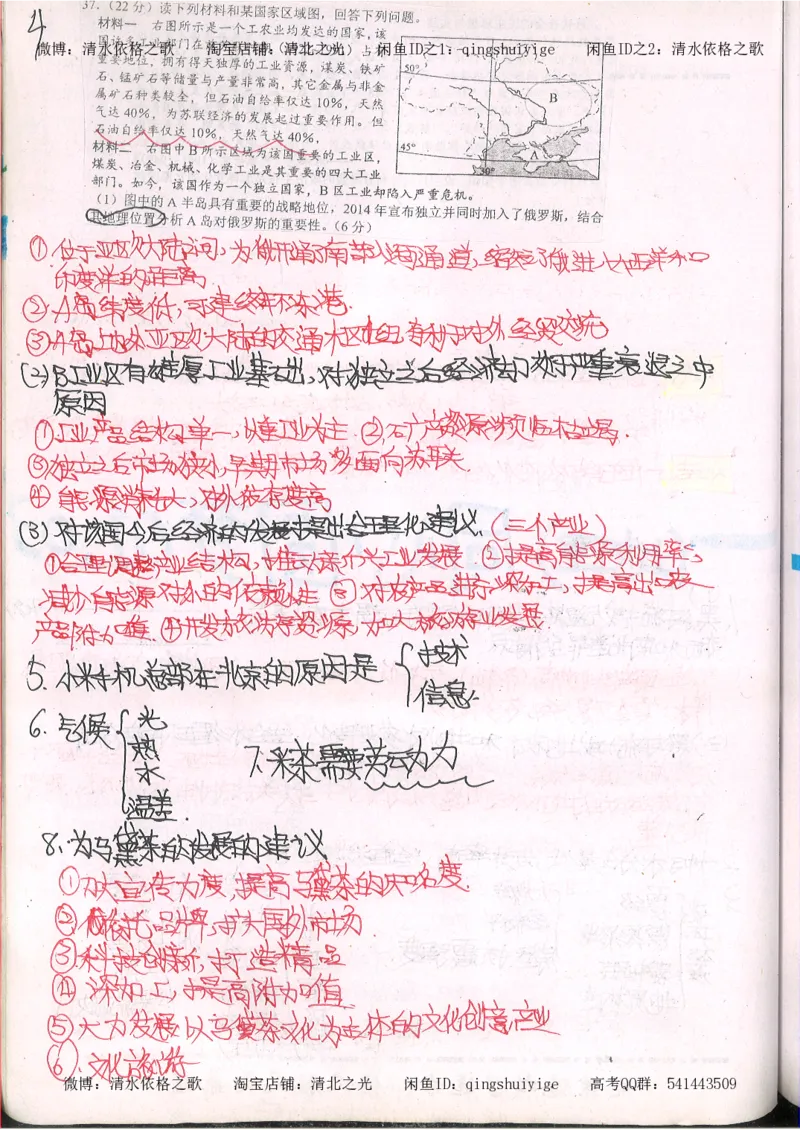 4
37.（22分）读下列材料和某国家区域图，回答下列问题。
材料一　右图所示是一个工农业均发达的国家，该
微博：清水依格之歌　淘宝店铺：清北之光　闲鱼ID之1：qingshuiyige　闲鱼ID之2：清水依格之歌
重要地位，拥有得天独厚的工业资源，煤炭、铁矿
石、锰矿石等储量与产量非常高，其它金属与非金
属矿石种类较全，但石油自给率仅达 10%，天然
气达 40%，为苏联经济的发展起过重要作用。但
石油自给率仅达 10%，天然气达 40%，
材料二　右图中 B 所示区域为该国重要的工业区，
煤炭、冶金、机械、化学工业是其重要的四大工业
部门。如今，该国作为一个独立国家，B 区工业却陷入严重危机。
50°
B
45°
A
30°
（1）图中的 A 半岛具有重要的战略地位，2014 年宣布独立并同时加入了俄罗斯，结合
其地理位置分析 A 岛对俄罗斯的重要性。（6 分）
①位于亚欧大陆之间，为俄开通了南部水陆通道，缩短了俄进入大西洋和
印度洋的距离
②A岛纬度低，可建终年不冻港.
③A岛上地处亚欧大陆的交通枢纽，有利于对外经贸交流
(2)B工业区有雄厚工业基础，对独立之后经济部门处于严重衰退之中
原因
①工业产品结构单一，以重工业为主.②石矿产资源濒临枯竭.
③独立之后市场狭小，早期市场多面向苏联
④能源消耗大，对外依存度高
(3)对该国今后经济的发展提出合理化建议.(三个产业)
①合理调整产业结构，推动新兴工业发展②提高能源利用率，
减少能源对外的依赖性③对农产品进行深加工，提高出口
产品附加值.④开发旅游资源，加大旅游业发展.
5.小米手机总部在北京的原因是{技术
信息
6.气候{光
热
水
温差.
7.采茶需要劳动力
8.为乌黛茶的发展的建议
①加大宣传力度，提高乌黛茶的知名度.
②依托品牌，扩大国外市场
③科技创新，打造精品
④深加工，提高附加值
⑤大力发展以乌黛茶文化为主体的文化创意产业
⑥.文化旅游
微博：清水依格之歌　淘宝店铺：清北之光　闲鱼ID：qingshuiyige　高考QQ群：541443509